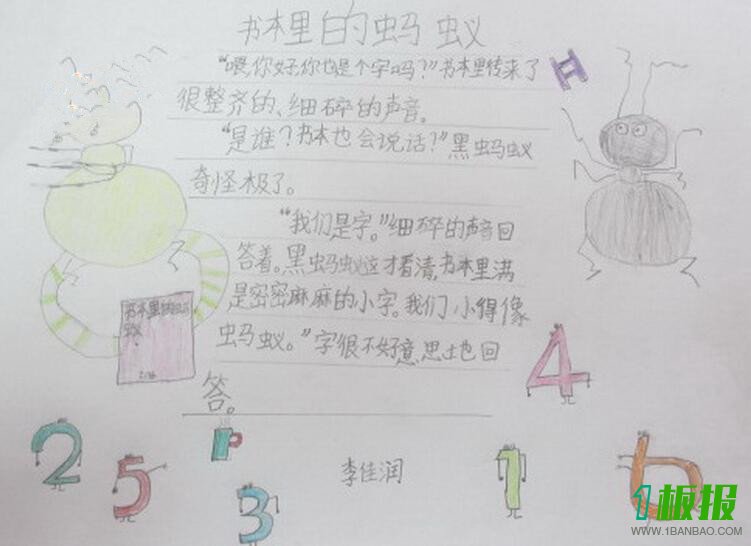 书本里的蚂蚁
“喂,你好,你也是个字吗?”书本里传来了
很整齐的、细碎的声音。
“是谁?书本也会说话?”黑蚂蚁
奇怪极了。
“我们是字。”细碎的声音回
答着。黑蚂蚁这才看清,书本里满
是密密麻麻的小字。我们小得像
蚂蚁。”字很不好意思地回
答。
书本里的蚂
蚁
李佳润
4
2
5
3
1
6
1板报
WWW.1BANBAO.COM